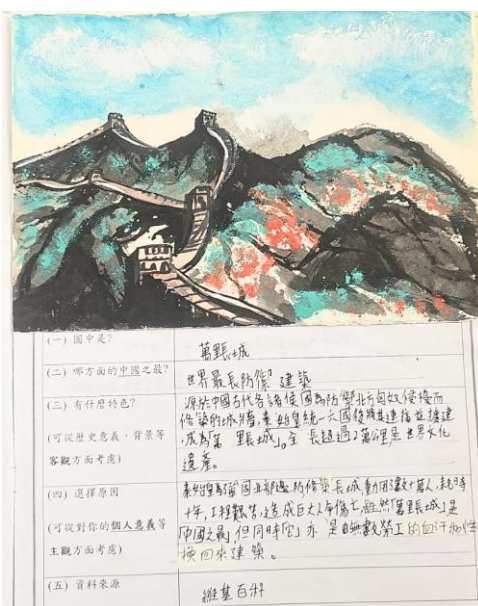 (一) 圖中是?
萬里長城
(二) 哪方面的中國之最?
世界最長防禦建築
(三) 有什麼特色?
(可從歷史意義、背景等
客觀方面考慮)
源於中國古代各諸侯國為防禦北方匈奴侵擾而
修築的城牆,秦始皇統一六國後將其連接並擴建
,成為「萬里長城」。全長超過2萬公里是世界文化
遺產。
(四) 選擇原因
(可從對你的個人意義等
主觀方面考慮)
秦始皇為鞏固北部邊防修築長城,動用了數十萬人,耗時
十年,工程艱苦,造成巨大人命傷亡,雖然「萬里長城」是
「中國之最」但同時它亦是由無數勞工的血汗和性
換回來建築。
(五) 資料來源
維基百科